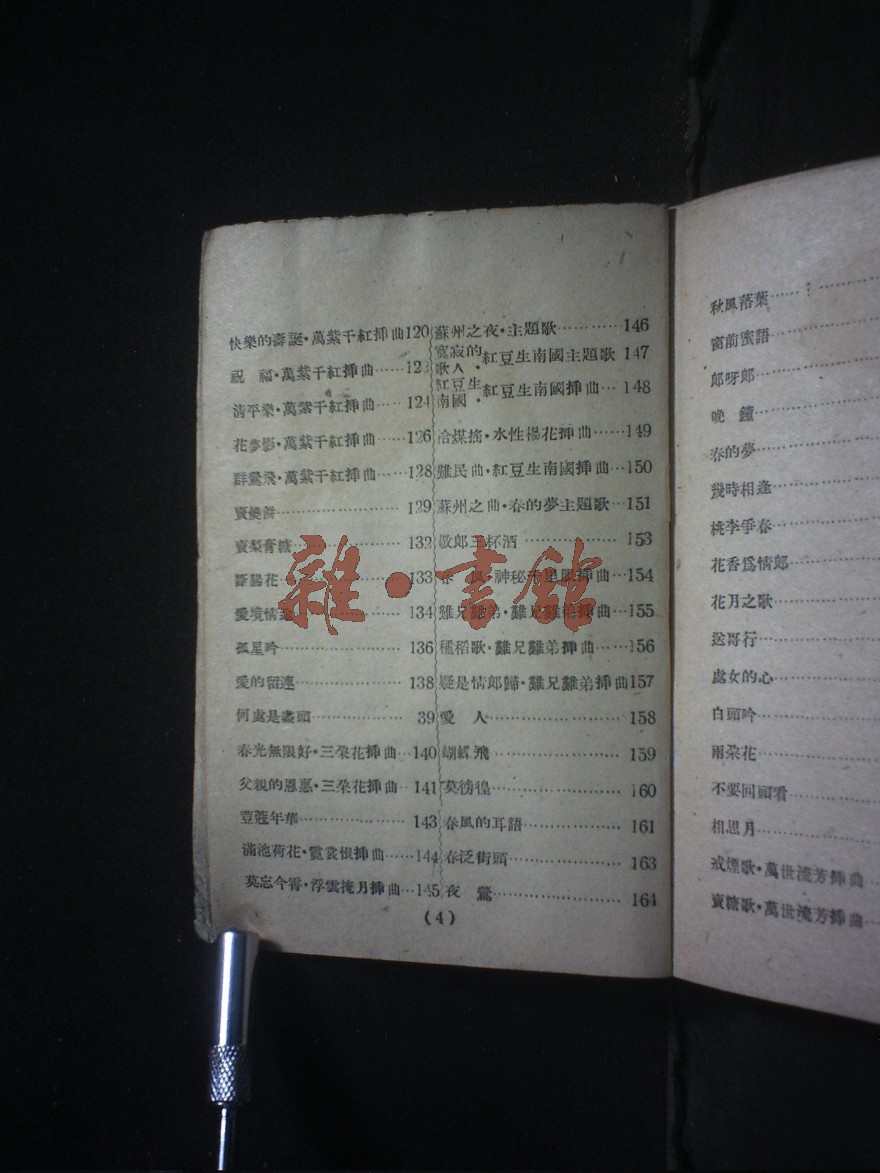 快樂的壽誕·萬紫千紅揷曲120
祝 福·萬紫千紅揷曲……123
清平樂·萬紫千紅揷曲……124
花夢影·萬紫千紅揷曲……126
群鶯飛·萬紫千紅揷曲……128
賣燒餅……129
賣梨膏糖……132
斷腸花……133
愛境情……134
孤星吟……136
愛的留戀……138
何處是盡頭……39
春光無限好·三朶花揷曲…140
父親的恩惠·三朶花揷曲…141
荳蔻年華……143
滿池荷花·霓裳恨揷曲……144
莫忘今宵·浮雲掩月揷曲…145
蘇州之夜·主題歌……146
寞寂的歌人·紅豆生南國主題歌 147
紅豆生南國·紅豆生南國揷曲…148
冶煤搖·水性楊花揷曲……149
難民曲·紅豆生南國揷曲…150
蘇州之曲·春的夢主題歌…151
敬郎三杯酒……153
春 風·神秘千里眼揷曲…154
難兄難弟·難兄難弟揷曲…155
種稻歌·難兄難弟揷曲…156
疑是情郎歸·難兄難弟揷曲157
愛 人……158
蝴蝶飛……159
莫徬徨……160
春風的耳語……161
春泛街頭……163
夜 鶯……164
(4)
秋風落葉……
窗前蜜語……
郎呀郎……
晚 鐘……
春的夢……
幾時相逢……
桃李爭春……
花香爲情郎……
花月之歌……
送哥行……
處女的心……
白頭吟……
兩朶花……
不要回頭看……
相思月……
戒煙歌·萬世流芳揷曲
賣糖歌·萬世流芳揷曲
雜·書館